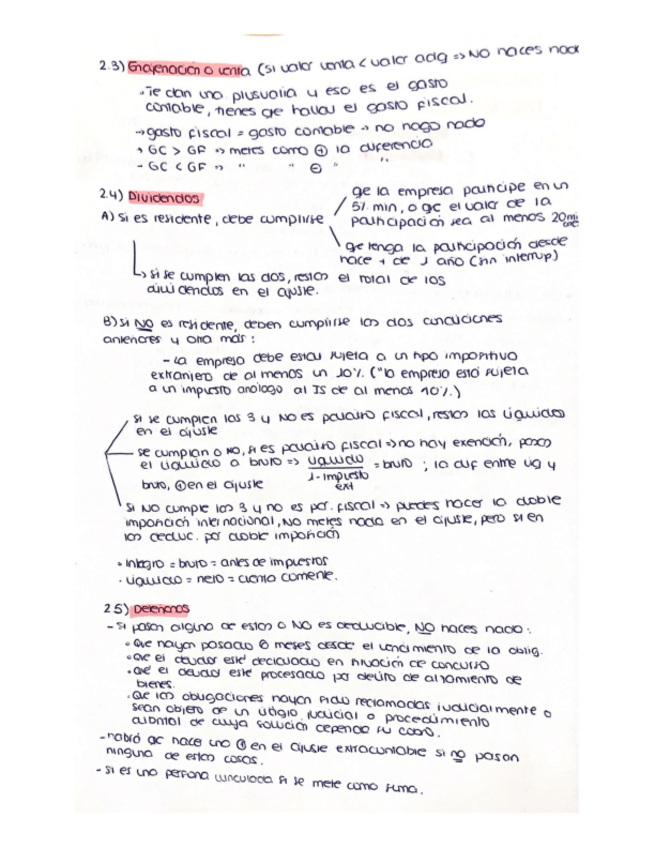 2.3) Enajenación o venta (si valor venta < valor adq => NO haces nada
· Te dan una plusvalía y eso es el gasto
contable, tienes qe hallar el gasto fiscal.
→ gasto fiscal = gasto contable → no hago nada
→ GC > GF → metes como ⊕ la diferencia
- GC < GF → " " ⊖ " "
2.4) Dividendos
A) Si es residente, debe cumplirse
qe la empresa participe en un
5% min, o qe el valor de la
participación sea al menos 20 mi
qe tenga la participación desde
hace + de 1 año (sin interrup)
↳ si se cumplen las dos, restas el total de los
dividendos en el ajuste.
B) Si NO es residente, deben cumplirse las dos condiciones
anteriores y otra más:
- La empresa debe estar sujeta a un tipo impositivo
extranjero de al menos un 10% ("la empresa está sujeta
a un impuesto análogo al IS de al menos 10%.)
si se cumplen las 3 y NO es paraíso fiscal, restas los líquidos
en el ajuste
se cumplan o NO, si es paraíso fiscal => no hay exención, pasas
el líquido a bruto => líquido / 1 - impuesto ext = bruto ; la dif entre líq y
bruto, ⊕ en el ajuste
Si NO cumple las 3 y no es par. fiscal => puedes hacer la doble
imposición internacional, NO metes nada en el ajuste, pero si en
las deduc. por doble imposición
· Integro = bruto = antes de impuestos
· Líquido = neto = cuenta corriente.
2.5) Deterioros
- Si pasan alguno de estos o NO es deducible, NO haces nada:
· Que hayan pasado 6 meses desde el vencimiento de la oblig.
· Que el deudor esté declarado en situación de concurso
· Qe el deudor esté procesado por delito de alzamiento de
bienes.
· Que las obligaciones hayan sido reclamadas judicialmente o
sean objeto de un litigio judicial o procedimiento
arbitral de cuya solución depende su cobro.
- habrá qe hace uno ⊕ en el ajuste extracontable si no pasan
ninguna de estas cosas.
- Si es una persona vinculada si se mete como suma.